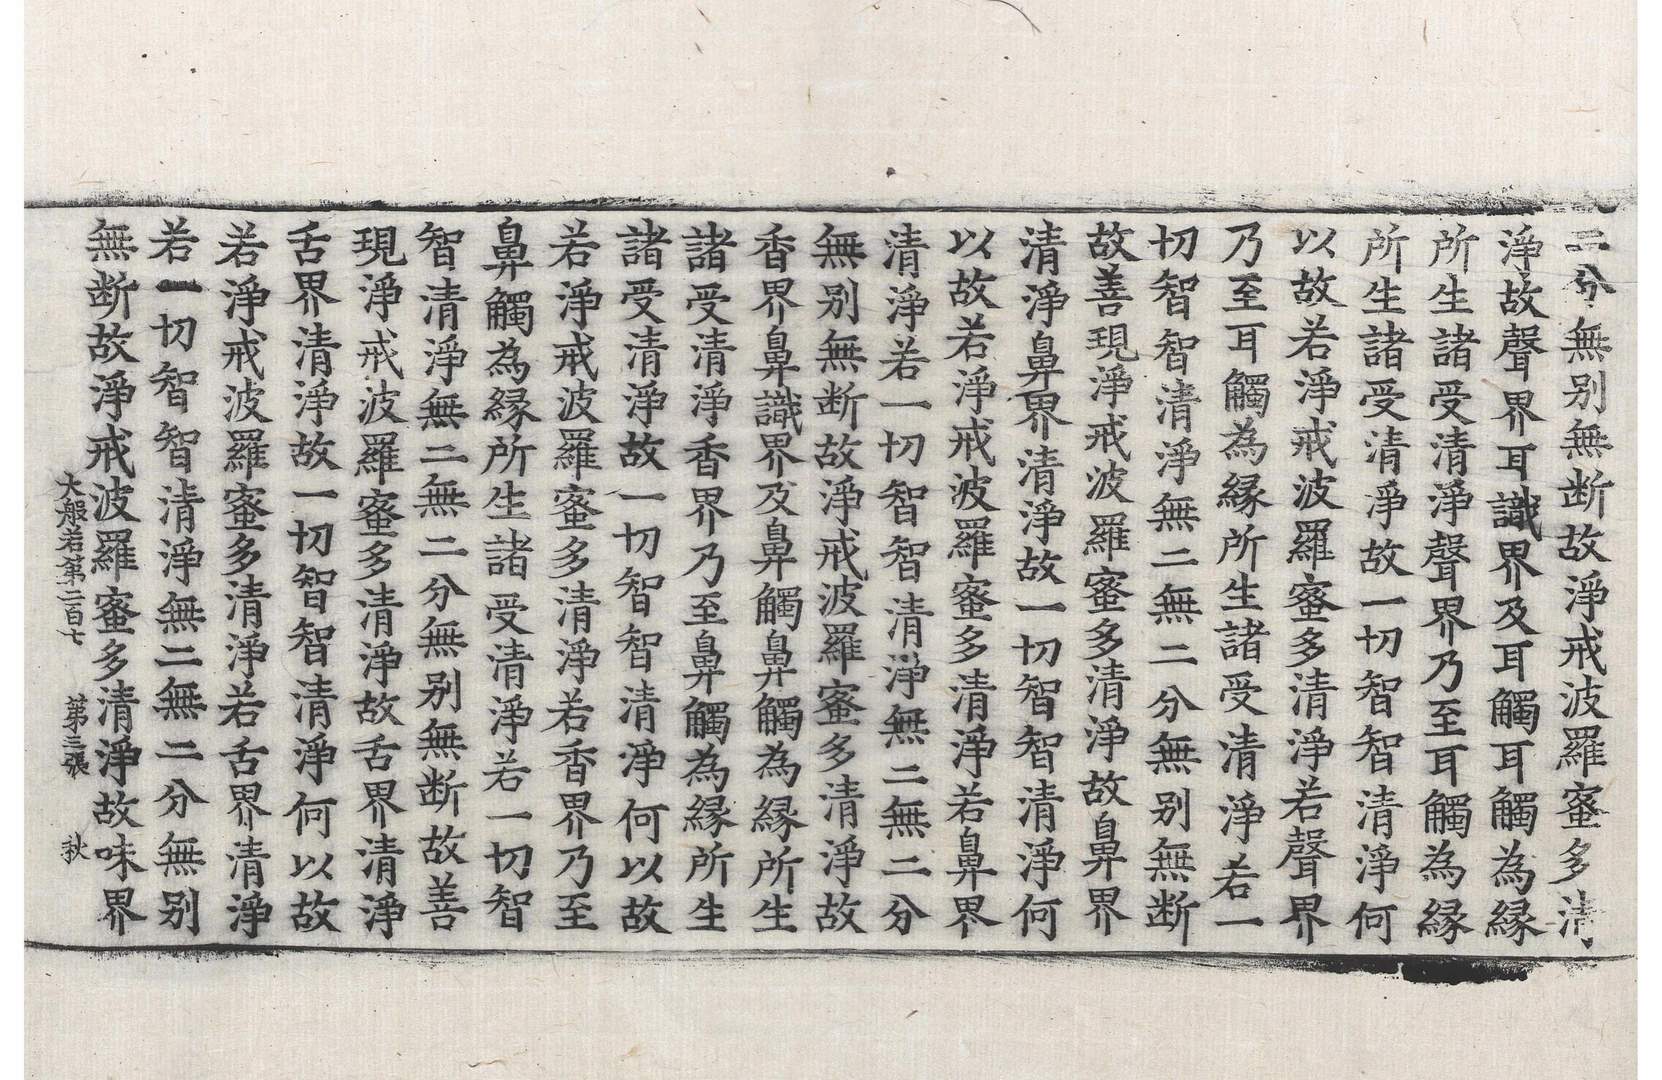 二分無别無断故淨戒波羅蜜多清
淨故聲界耳識界及耳觸耳觸為縁
所生諸受清淨聲界乃至耳觸為縁
所生諸受清淨故一切智智清淨何
以故若淨戒波羅蜜多清淨若聲界
乃至耳觸為縁所生諸受清淨若一
切智智清淨無二無二分無别無断
故善現淨戒波羅蜜多清淨故鼻界
清淨鼻界清淨故一切智智清淨何
以故若淨戒波羅蜜多清淨若鼻界
清淨若一切智智清淨無二無二分
無别無断故淨戒波羅蜜多清淨故
香界鼻識界及鼻觸鼻觸為縁所生
諸受清淨香界乃至鼻觸為縁所生
諸受清淨故一切智智清淨何以故
若淨戒波羅蜜多清淨若香界乃至
鼻觸為縁所生諸受清淨若一切智
智清淨無二無二分無别無断故善
現淨戒波羅蜜多清淨故舌界清淨
舌界清淨故一切智智清淨何以故
若淨戒波羅蜜多清淨若舌界清淨
若一切智智清淨無二無二分無别
無断故淨戒波羅蜜多清淨故味界
大般若第二百七 第三張 秋